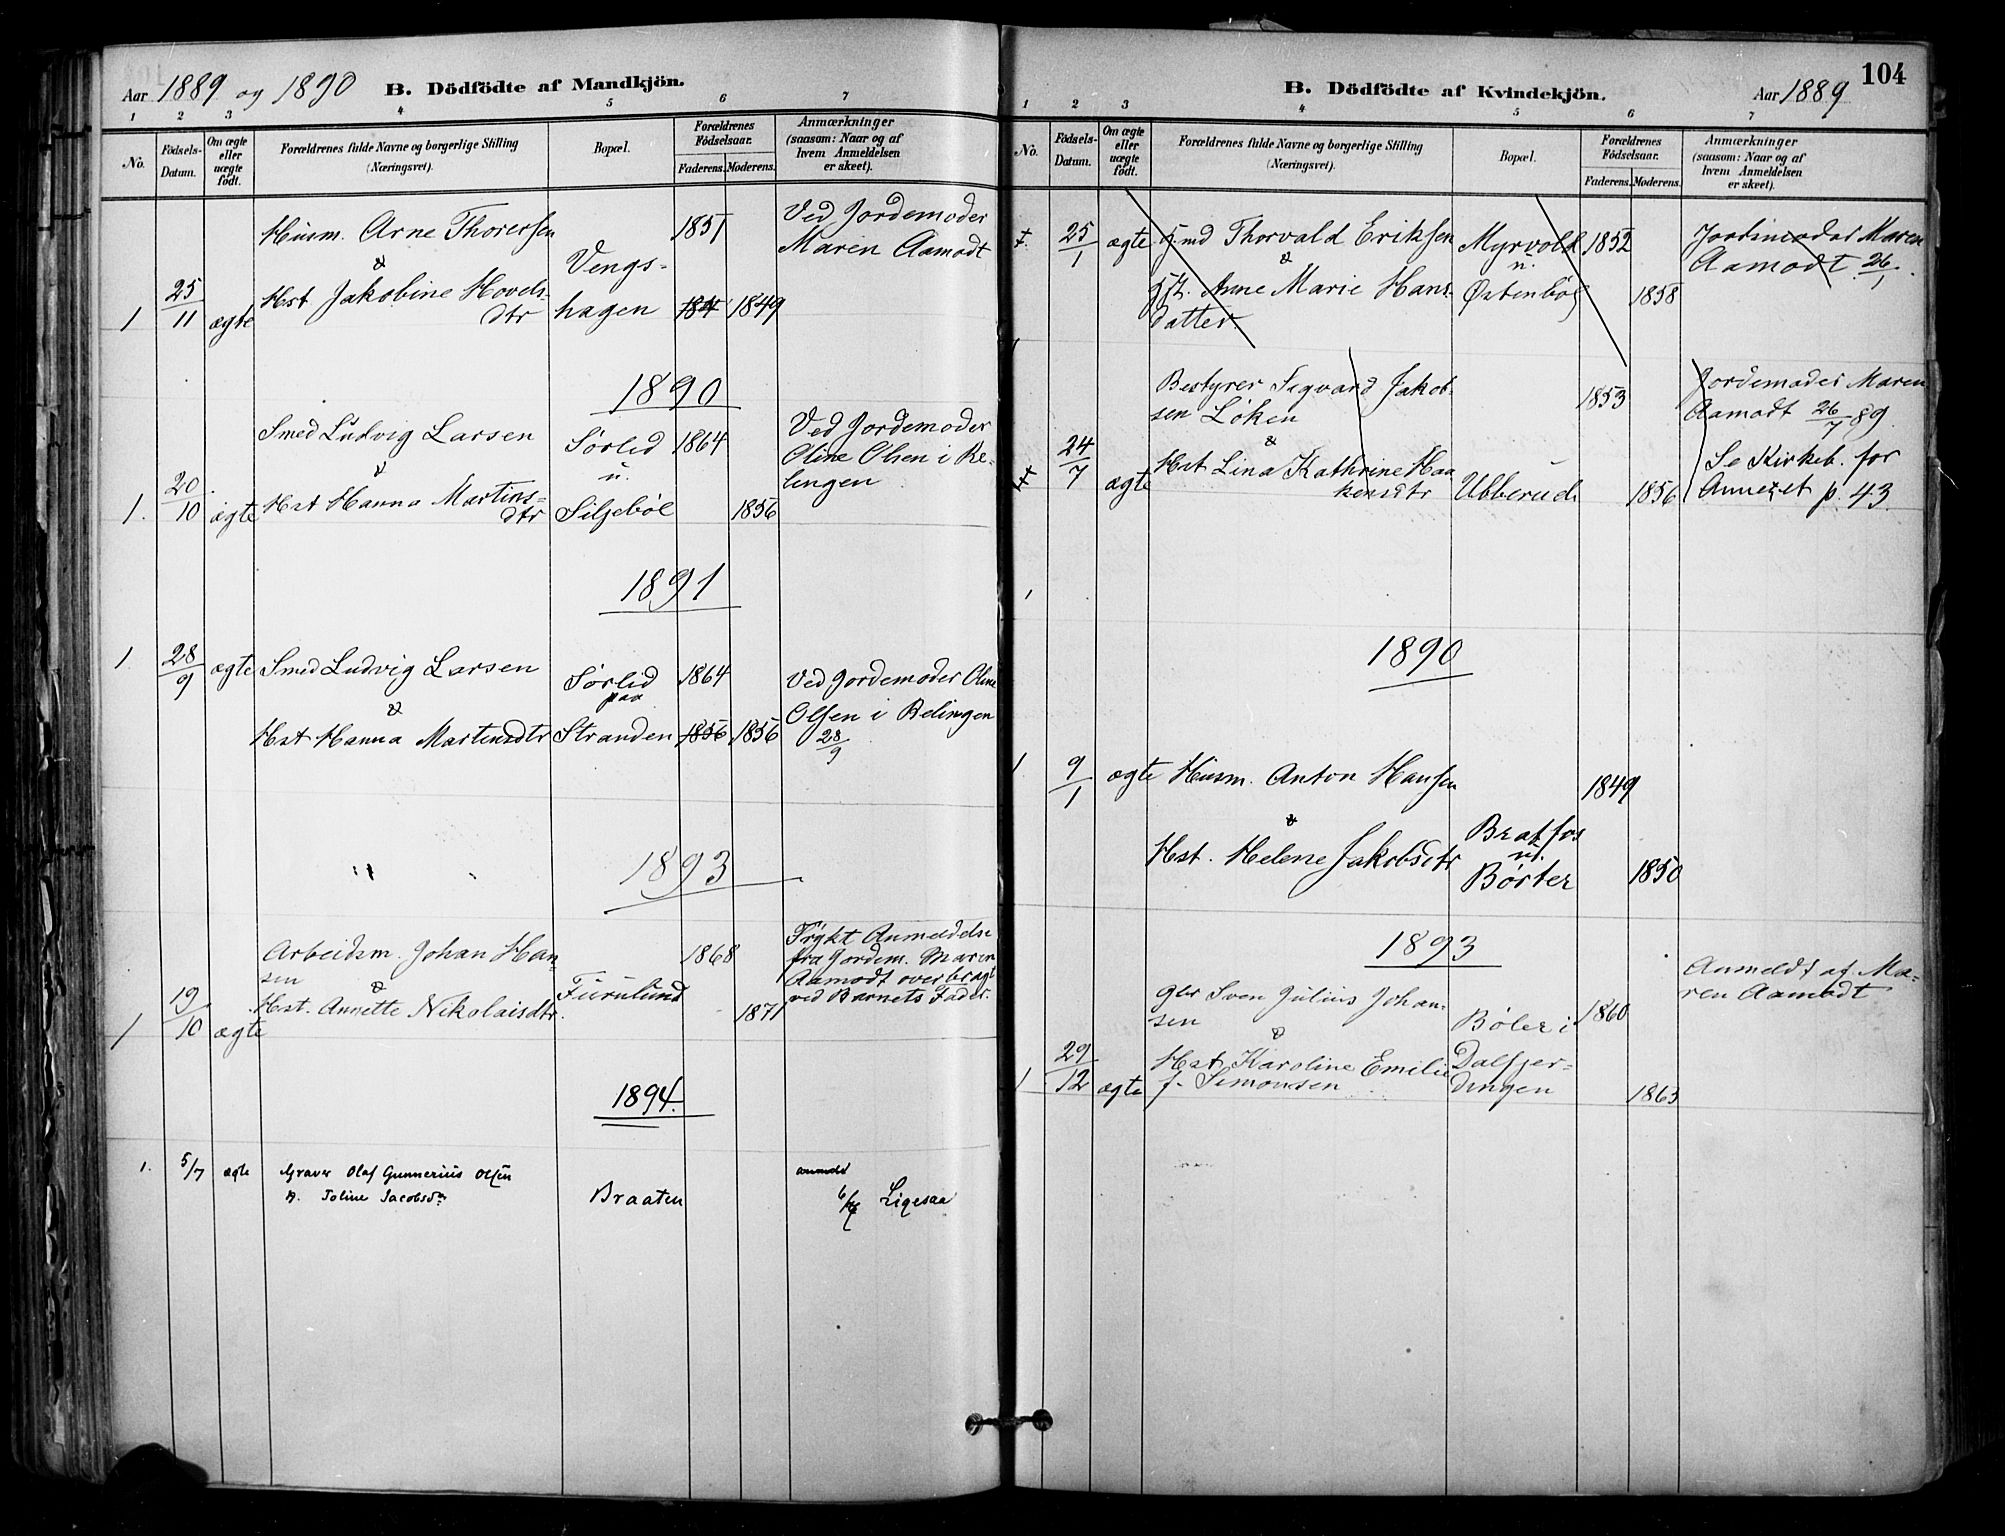 Aar 1889 og 1890 B. Dödfödte af Mandkjön.
1 2 3 4 5 6 7
No. Födsels-Datum. Om ægte eller uægte födt. Forældrenes fulde Navne og borgerlige Stilling (Næringsvei). Bopæl. Forældrenes Födselsaar. Faderens. Moderens. Anmærkninger (saasom: Naar og af hvem Anmeldelsen er skeet).
Husm. Arne Thorersen 1851 Ved Jordemoder
& Vengs- Maren Aamodt
1 25/11 ægte Hst Jakobine Hovels- hagen 1849
dtr
1890
Smed Ludvig Larsen Sørlid 1864 Ved Jordemoder
& u. Oline Olsen i Re-
1. 20/10 ægte Hst Hanna Martins- Siljebøl 1856 lingen
dtr
1891
1 28/9 ægte Smed Ludvig Larsen Sørlid 1864 Ved Jordemoder Oline
& paa Olsen i Relingen
Hst Hanna Martinsdtr Stranden 1856 1856 28/9
1893
Arbeidsm. Johan Han- 1868 Anmeldelse
sen fra Jordem. Maren
& Furulund Aamodt overbragt
1 19/10 ægte Hst. Annette Nikolaisdtr. 1871 ved Barnets Fader.
1894.
1. 5/7 ægte Graver Olaf Gunnerius Olsen anmeldt
H. Joline Jacobsdr Braaten Ligesaa
B. Dödfödte af Kvindekjön. Aar 1889 104
1 2 3 4 5 6 7
No. Födsels-Datum. Om ægte eller uægte födt. Forældrenes fulde Navne og borgerlige Stilling (Næringsvei). Bopæl. Forældrenes Födselsaar. Faderens. Moderens. Anmærkninger (saasom: Naar og af hvem Anmeldelsen er skeet).
25/1 ægte Thorvald Eriksen Myrvold 1852 Jordemoder Maren
& u. Aamodt 26/1.
Anne Marie Hans- Østenbøl 1858
datter.
Bestyrer Sigvard Jakob- 1853 Jordemoder Maren
sen Løken Aamodt 26/7 89.
& Se Kirkeb. for
24/7 ægte Hst Lina Kathrine Haa Ubberud 1856 Annexet p. 43.
kensdtr
1890
1 9/1 ægte Husm. Anton Hansen 1849
& Bratfos
u.
Hst. Helene Jakobsdtr Børter 1850
1893
Anmeldt af Ma-
Gbr Sven Julius Johan- 1860 ren Aamodt
sen Bøler i
&
1 29/12 ægte Hst Karoline Emilie Dalfjer-
f. Simonsen dingen 1863